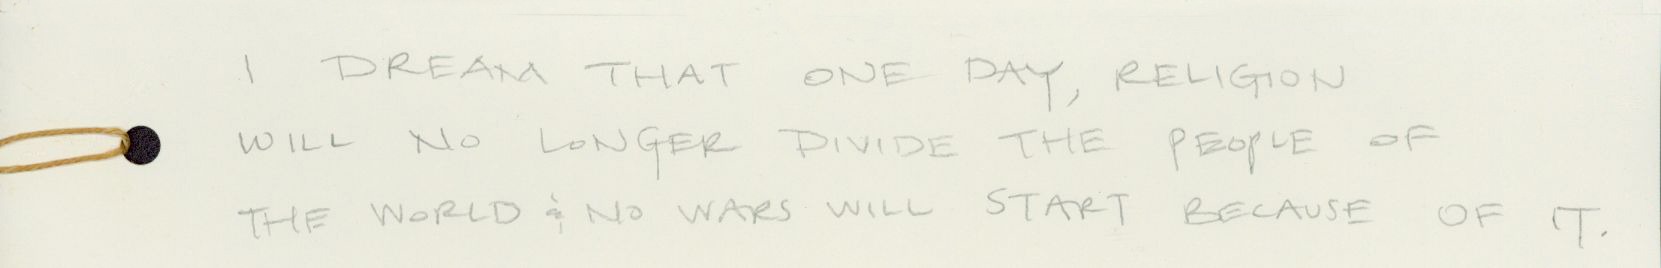 I DREAM THAT ONE DAY, RELIGION
WILL NO LONGER DIVIDE THE PEOPLE OF
THE WORLD & NO WARS WILL START BECAUSE OF IT.